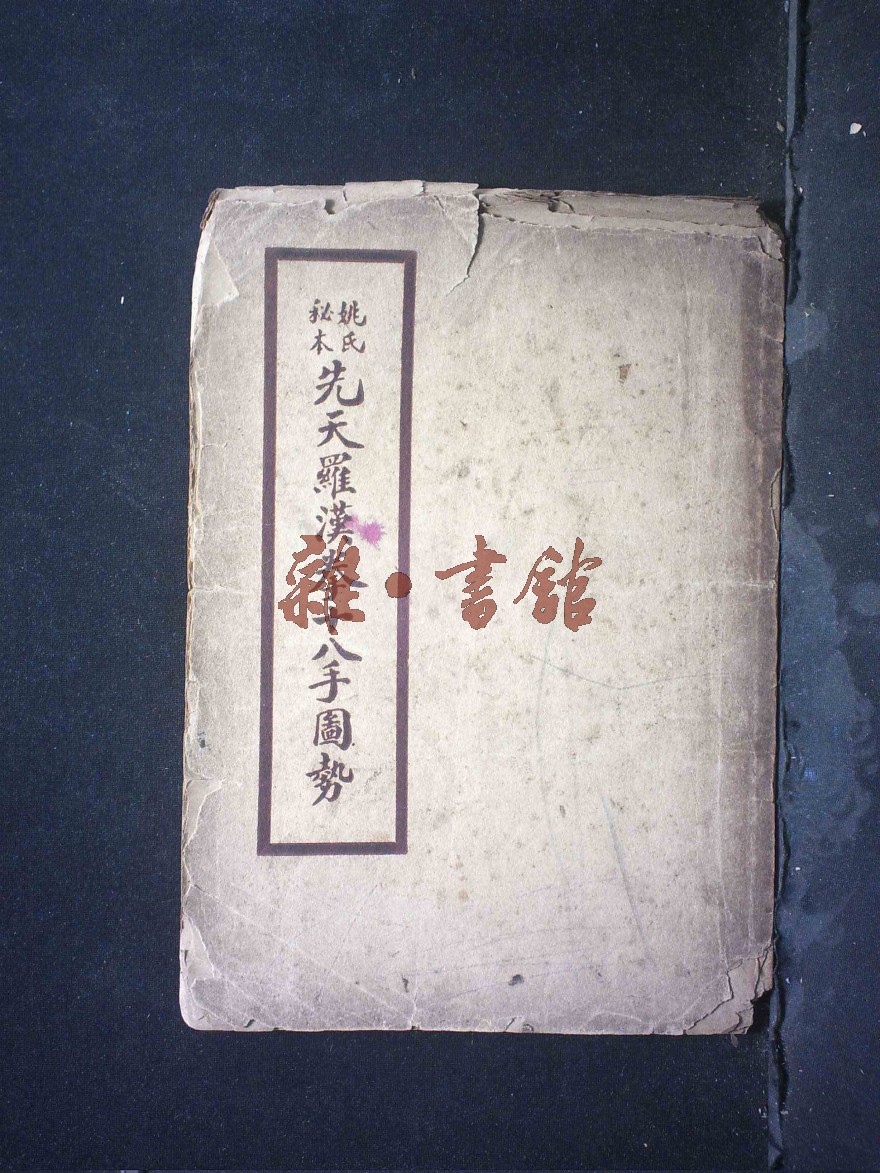 姚氏
秘本
先天羅漢拳十八手圖勢
雜·書館